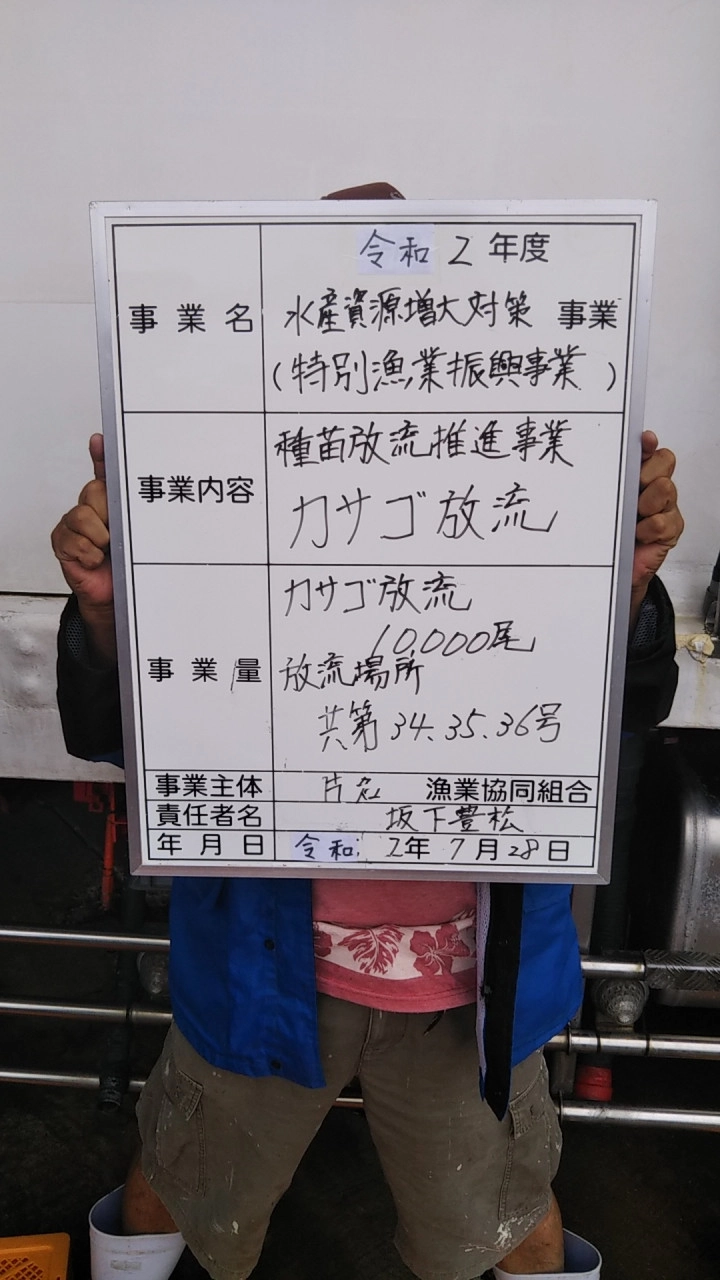 令和 2 年度
事業名 水産資源増大対策 事業
(特別漁業振興事業)
事業内容 種苗放流推進事業
カサゴ放流
事業量 カサゴ放流
10,000尾
放流場所
共第34.35.36号
事業主体 片名 漁業協同組合
責任者名 坂下豊松
年月日 令和 2年 7月28日